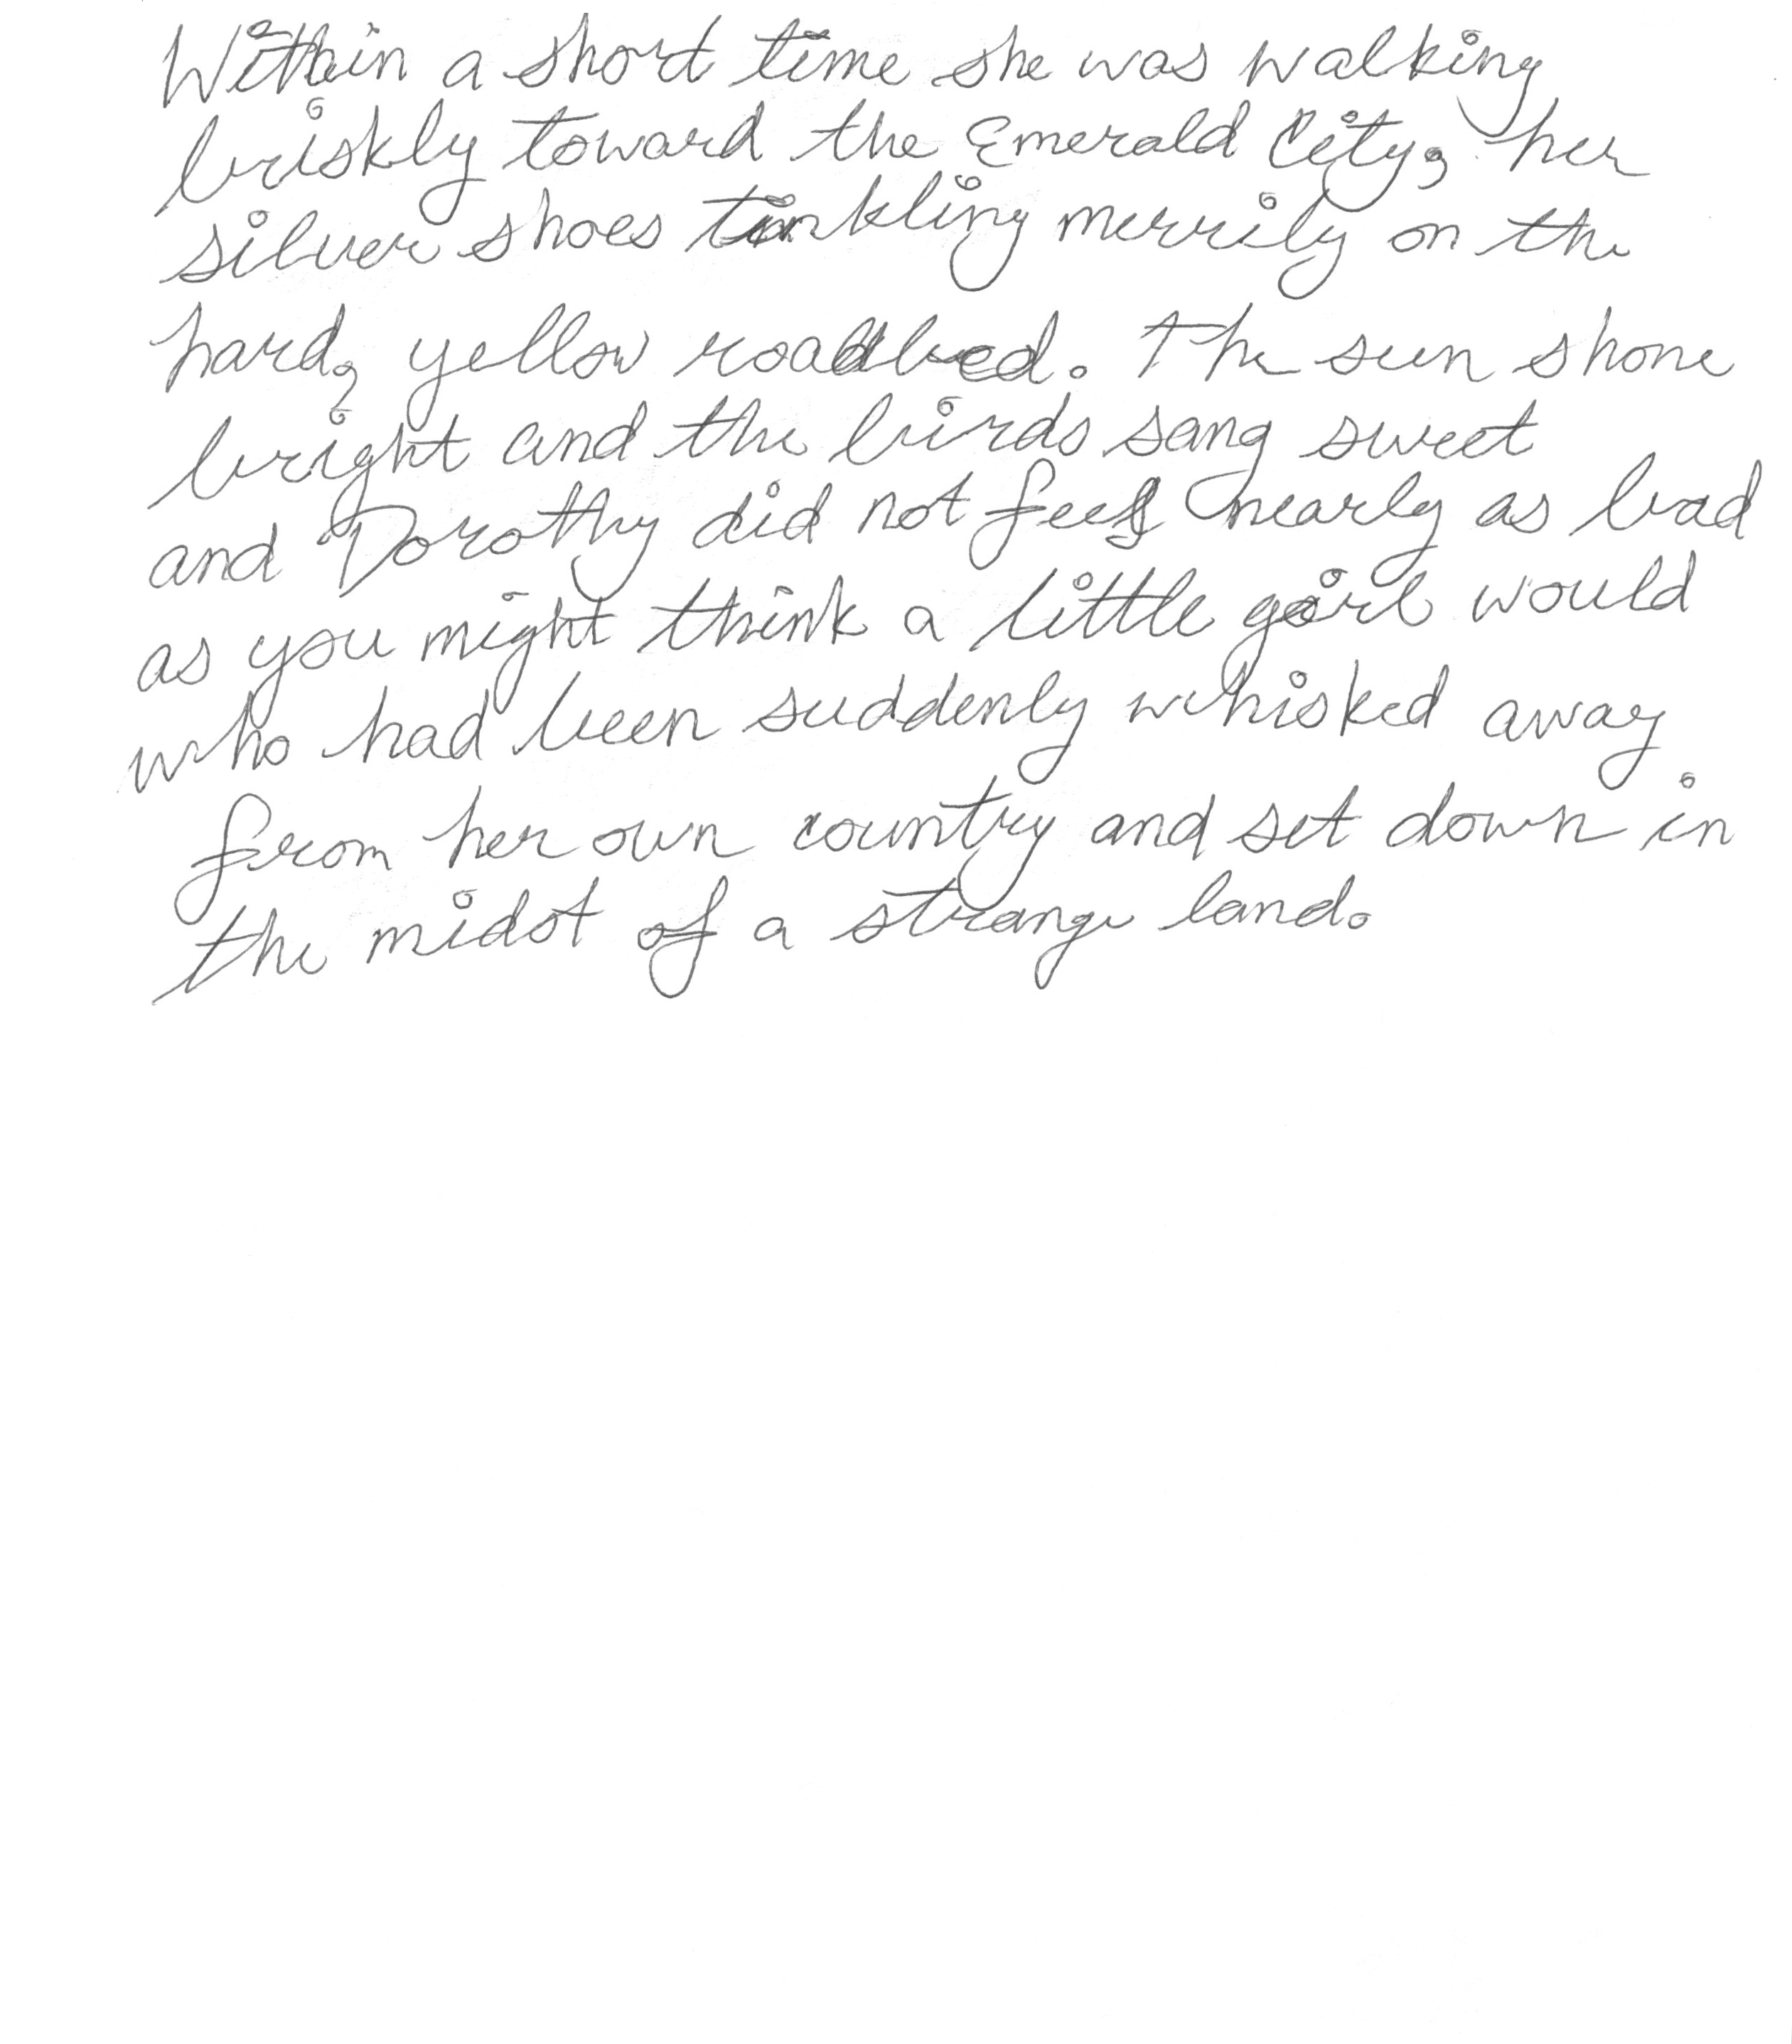 Within a short time she was walking
briskly toward the Emerald City, her
silver shoes tinkling merrily on the
hard, yellow roadbed. The sun shone
bright and the birds sang sweet
and Dorothy did not feel nearly as bad
as you might think a little girl would
who had been suddenly whisked away
from her own country and set down in
the midst of a strange land.